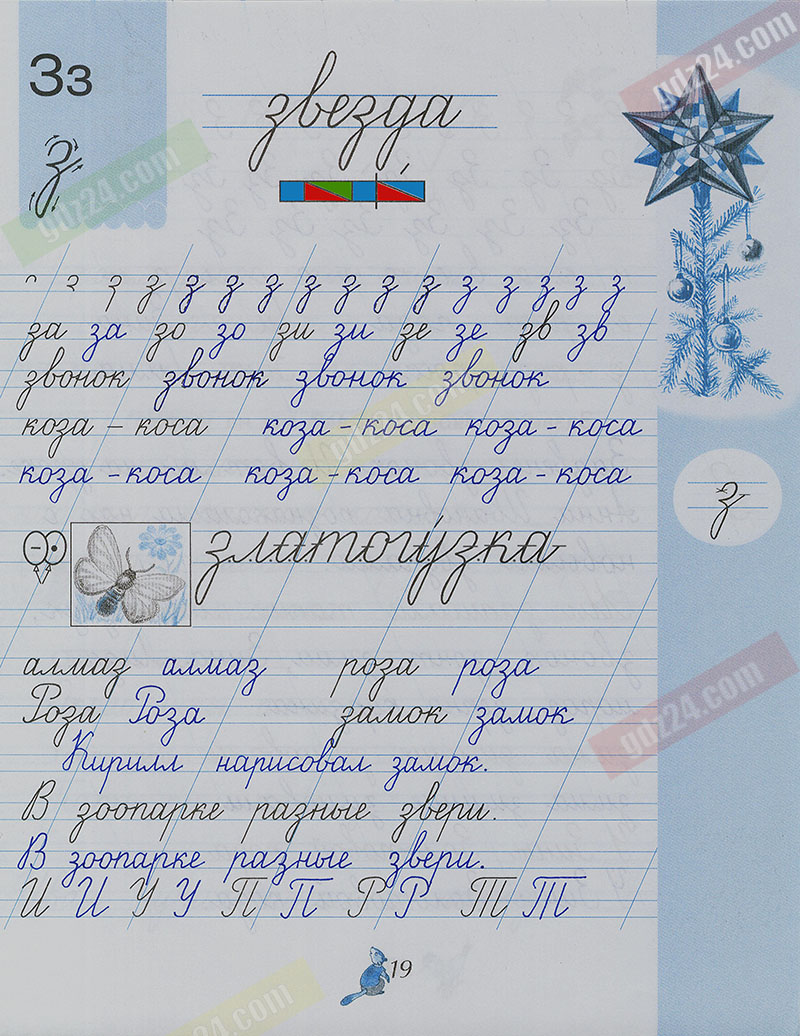 Зз
звезда
з
gdz24.com
gdz24.com
з з з з з з з з з з з з з з
за за зо зо зи зи зе зе зв зв
звонок звонок звонок звонок
gdz24.com
коза – коса коза – коса коза – коса
коза – коса коза – коса коза – коса
з
златогу́зка
алмаз алмаз роза роза
Роза Роза замок замок
gdz24.com
Кирилл нарисовал замок.
В зоопарке разные звери.
В зоопарке разные звери.
И И У У П П Р Р Т Т
19
gdz24.com